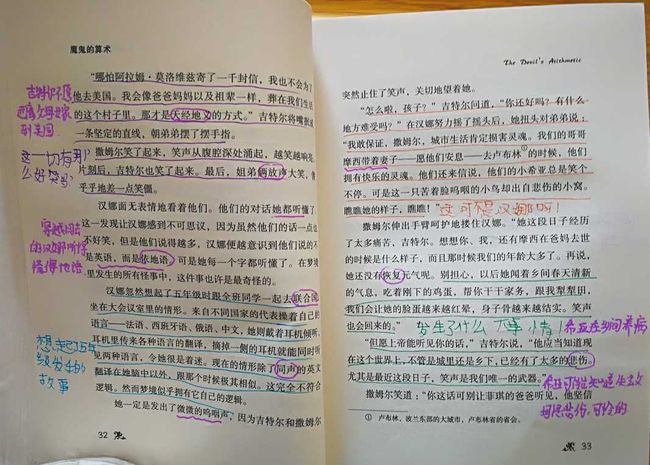 魔鬼的算术
“哪怕阿拉姆·莫洛维兹寄了一千封信，我也不会为了
他去美国。我会像爸爸妈妈以及祖辈一样，葬在我们生活
的这个村子里。那才是天经地义的方式。”吉特尔将嘴抿成
一条坚定的直线，朝弟弟摆了摆手指。
撒姆尔笑了起来，笑声从腹腔深处涌起，越笑越响亮，
片刻后，吉特尔也笑了起来。最后，姐弟俩放声大笑，
乎乎地差一点笑僵。
汉娜面无表情地看着他们。他们的对话她都听懂了，
这一发现让汉娜感到不可思议，因为虽然他们的话一点也
不好笑，但是他们说得越多，汉娜便越意识到他们说的不
是英语，而是依地语。可是她每一个字都听懂了。在梦境
里发生的所有怪事中，这件事也许是最奇怪的。
汉娜忽然想起了五年级时跟全班同学一起去联合国，
坐在大会议室里的情形。来自不同国家的代表操着自己的
语言——法语、西班牙语、俄语、中文，她则戴着耳机倾听。
耳机里传来各种语言的翻译，摘掉一侧的耳机就能同时听
见两种语言，令她很是着迷。现在的情形除了同声的英文
翻译在她脑中以外，跟那个时候极其相似。这完全不符合
逻辑。然而梦境似乎拥有它自己的逻辑。
她一定是发出了微微的呜咽声，因为吉特尔和撒姆尔
32
吉特尔不愿
到美国
这一切有那
么好笑吗
的汉娜听得
懂依地语
想起5年
级发生的
故事
The Devil's Arithmetic
突然止住了笑声，关切地望着她。
“怎么啦，孩子？”吉特尔问道，“你还好吗？有什么
地方难受吗？”在汉娜努力摇了摇头后，她扭头对弟弟说：
“我敢保证，撒姆尔，城市生活肯定损害灵魂。我们的哥哥
摩西带着妻子——愿他们安息——去卢布林①的时候，他们
拥有快乐的灵魂。他们还来信说，他们的小希亚总是笑个
不停。可是这一只苦着脸呜咽的小鸟却出自悲伤的小窝。
瞧瞧她的样子，瞧瞧！”
这可是汉娜呀！
撒姆尔伸出手臂呵护地搂住汉娜。“她这段日子经历
了太多痛苦，吉特尔。想想你、我，还有摩西在爸妈去世
的时候是什么样子，而且那时候我们的年龄大多了。再说，
她还没有恢复元气呢。别担心，以后她闻着乡间春天清新
的气息，吃着刚下的鸡蛋，帮你干干家务，跟我犁犁田，
我们会让她的脸蛋越来越红晕，身子骨越来越结实。笑声
也会回来的。”
发生了什么不幸事情！
希亚在乡间养病
“但愿上帝能听见你的话，”吉特尔说，“他应当知道现
在这个世界上，不管是城里还是乡下，已经有了太多的悲伤。
尤其是最近这段日子，笑声是我们唯一的武器。”
撒姆尔笑道：“你这话可别让菲琪的爸爸听见，他坚信
① 卢布林，波兰东部的大城市，卢布林省的省会。
33